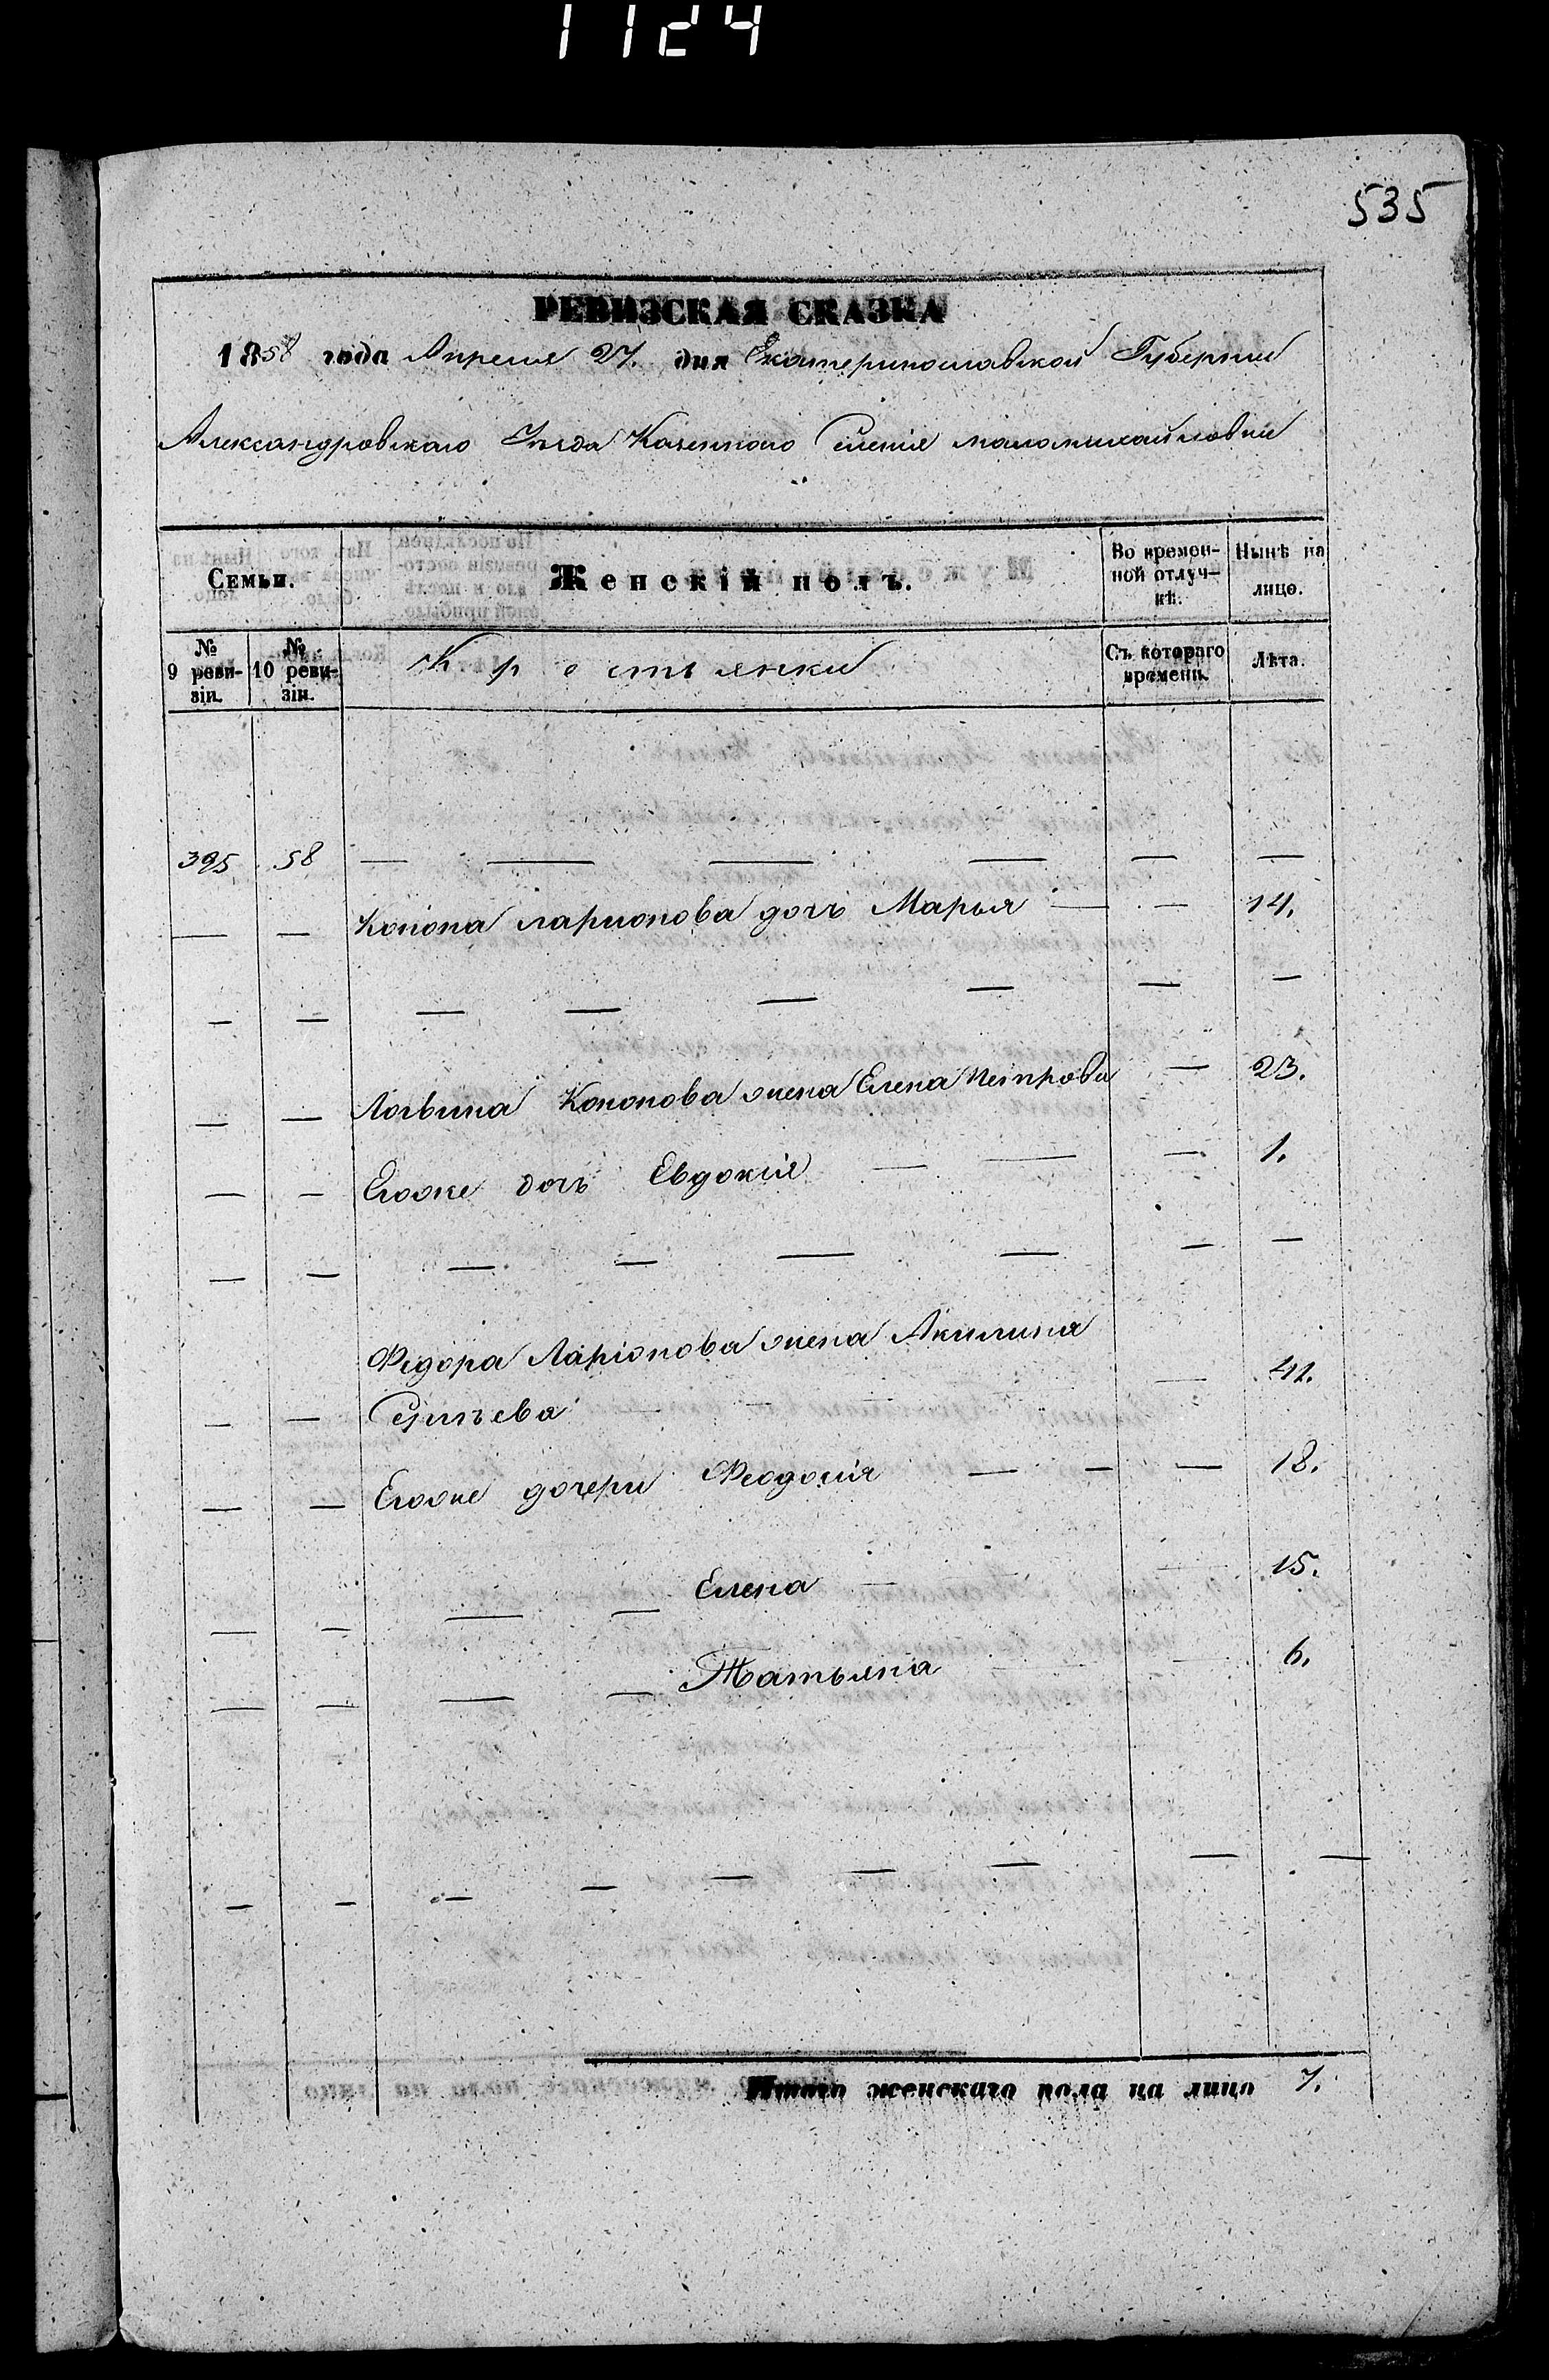 1124
535
РЕВИЗСКАЯ СКАЗКА
1858 года Апреля 27. дня Екатеринославской Губернии
Александровскаго Уезда Казеннаго Селенія маломихайловки
Семьи. Женскій полъ. Во времен-ной отлуч-кѣ. Нынѣ на лицо.
№ 9 реви-зіи. № 10 реви-зіи. Крестьянки Съ котораго времени. Лѣта.
395 58 — — — — — —
— — Конона ларионова дочь Марья — — 14.
— — — — — — — —
— — Логвина Кононова жена Елена Петрова — 23.
— — Егоже дочь Евдокія — — — 1.
— — — — — — — —
Федора Ларіонова жена Акилина
— — Сергѣева — — — 41.
— — Егоже дочери Феодосія — — — 18.
— — — — Елена — — 15.
— — — — Татьяна — — 6.
— — — — — — — — —
Итого женскаго пола на лицо 7.